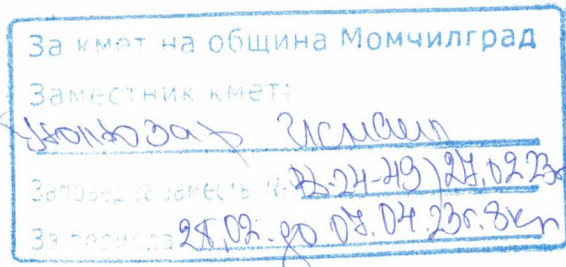 За кмет на община Момчилград
Заместник кмет:
Исмаил
Заповед за заместв. № -24-49/27.02.23г
За периода 28.02. до 07.04.23г. вкл